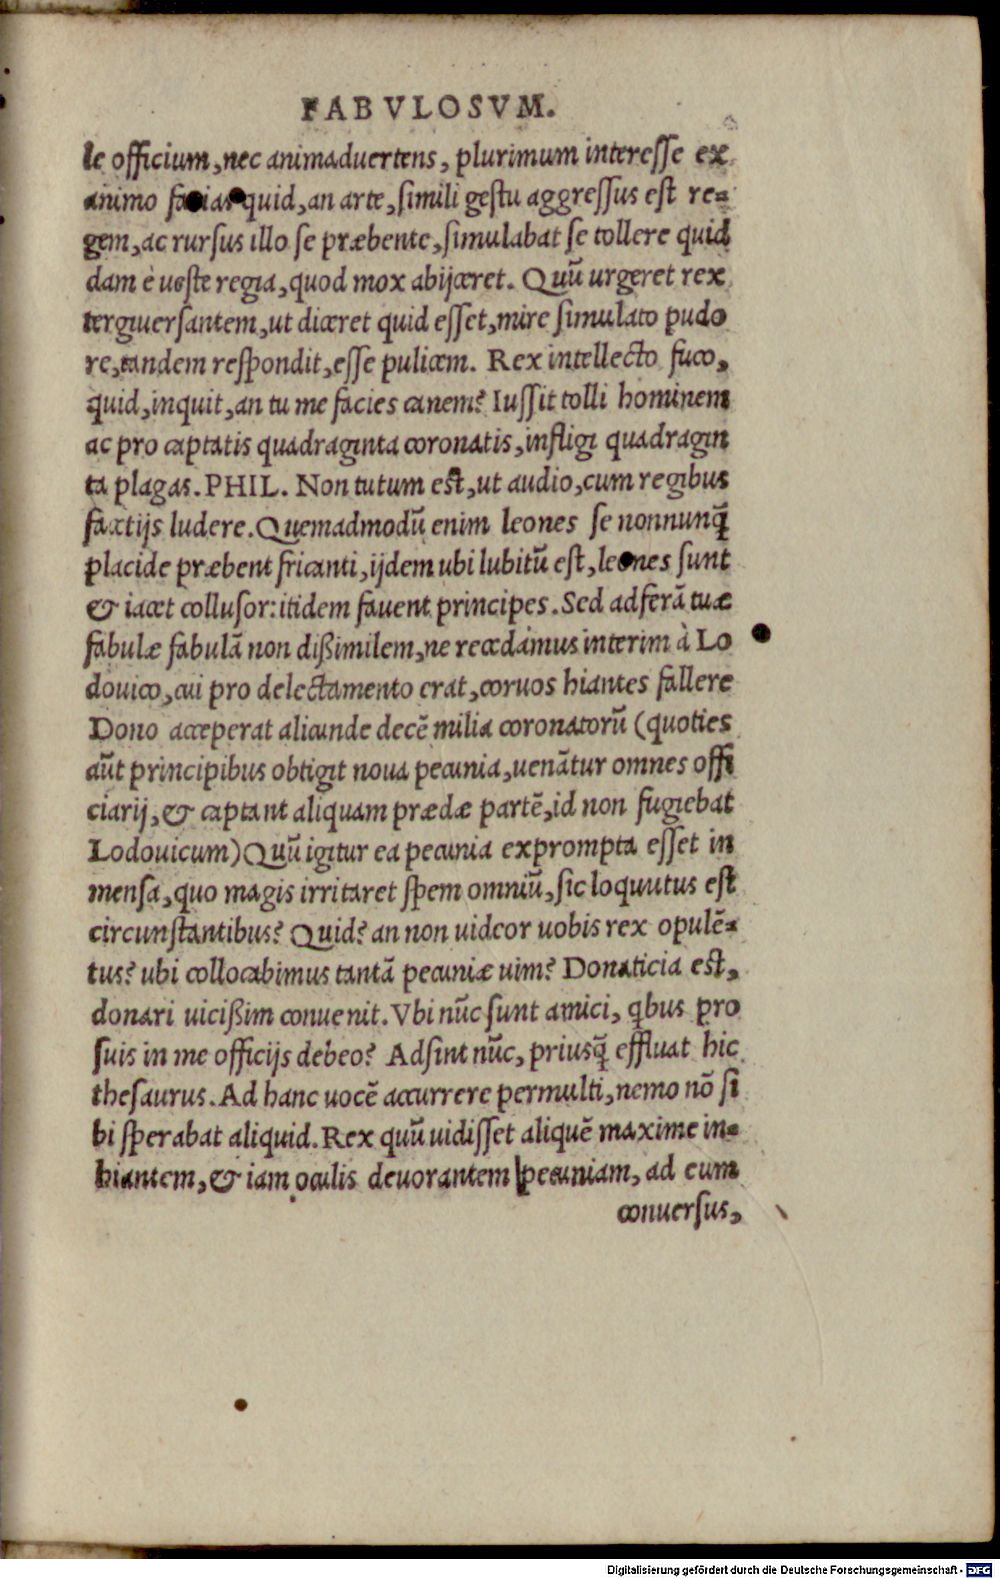 FABVLOSVM.
le officium, nec animaduertens, plurimum interesse ex
animo facias quid, an arte, simili gestu aggressus est re=
gem, ac rursus illo se præbente, simulabat se tollere quid
dam è ueste regia, quod mox abijceret. Quũ urgeret rex
tergiuersantem, ut diceret quid esset, mire simulato pudo
re, tandem respondit, esse pulicem. Rex intellecto fuco,
quid, inquit, an tu me facies canem? Iussit tolli hominem
ac pro captatis quadraginta coronatis, infligi quadragin
ta plagas. PHIL. Non tutum est, ut audio, cum regibus
facetijs ludere. Quemadmodũ enim leones se nonnunq̃
placide præbent fricanti, ijdem ubi lubitũ est, leones sunt
& iacet collusor: itidem fauent principes. Sed adferã tuæ
fabulæ fabulã non dißimilem, ne recedamus interim à Lo
douico, cui pro delectamento erat, coruos hiantes fallere
Dono acceperat alicunde decẽ milia coronatorũ (quoties
aũt principibus obtigit noua pecunia, uenãtur omnes offi
ciarij, & captant aliquam prædæ partẽ, id non fugiebat
Lodouicum) Quũ igitur ea pecunia exprompta esset in
mensa, quo magis irritaret spem omniũ, sic loquutus est
circunstantibus? Quid? an non uideor uobis rex opulẽ=
tus? ubi collocabimus tantã pecuniæ uim? Donaticia est,
donari uicißim conuenit. Vbi nũc sunt amici, qbus pro
suis in me officijs debeo? Adsint nũc, priusq̃ effluat hic
thesaurus. Ad hanc uocẽ accurrere permulti, nemo nõ si
bi sperabat aliquid. Rex quũ uidisset aliquẽ maxime in=
hiantem, & iam oculis deuorantem pecuniam, ad eum
conuersus,
Digitalisierung gefördert durch die Deutsche Forschungsgemeinschaft - DFG